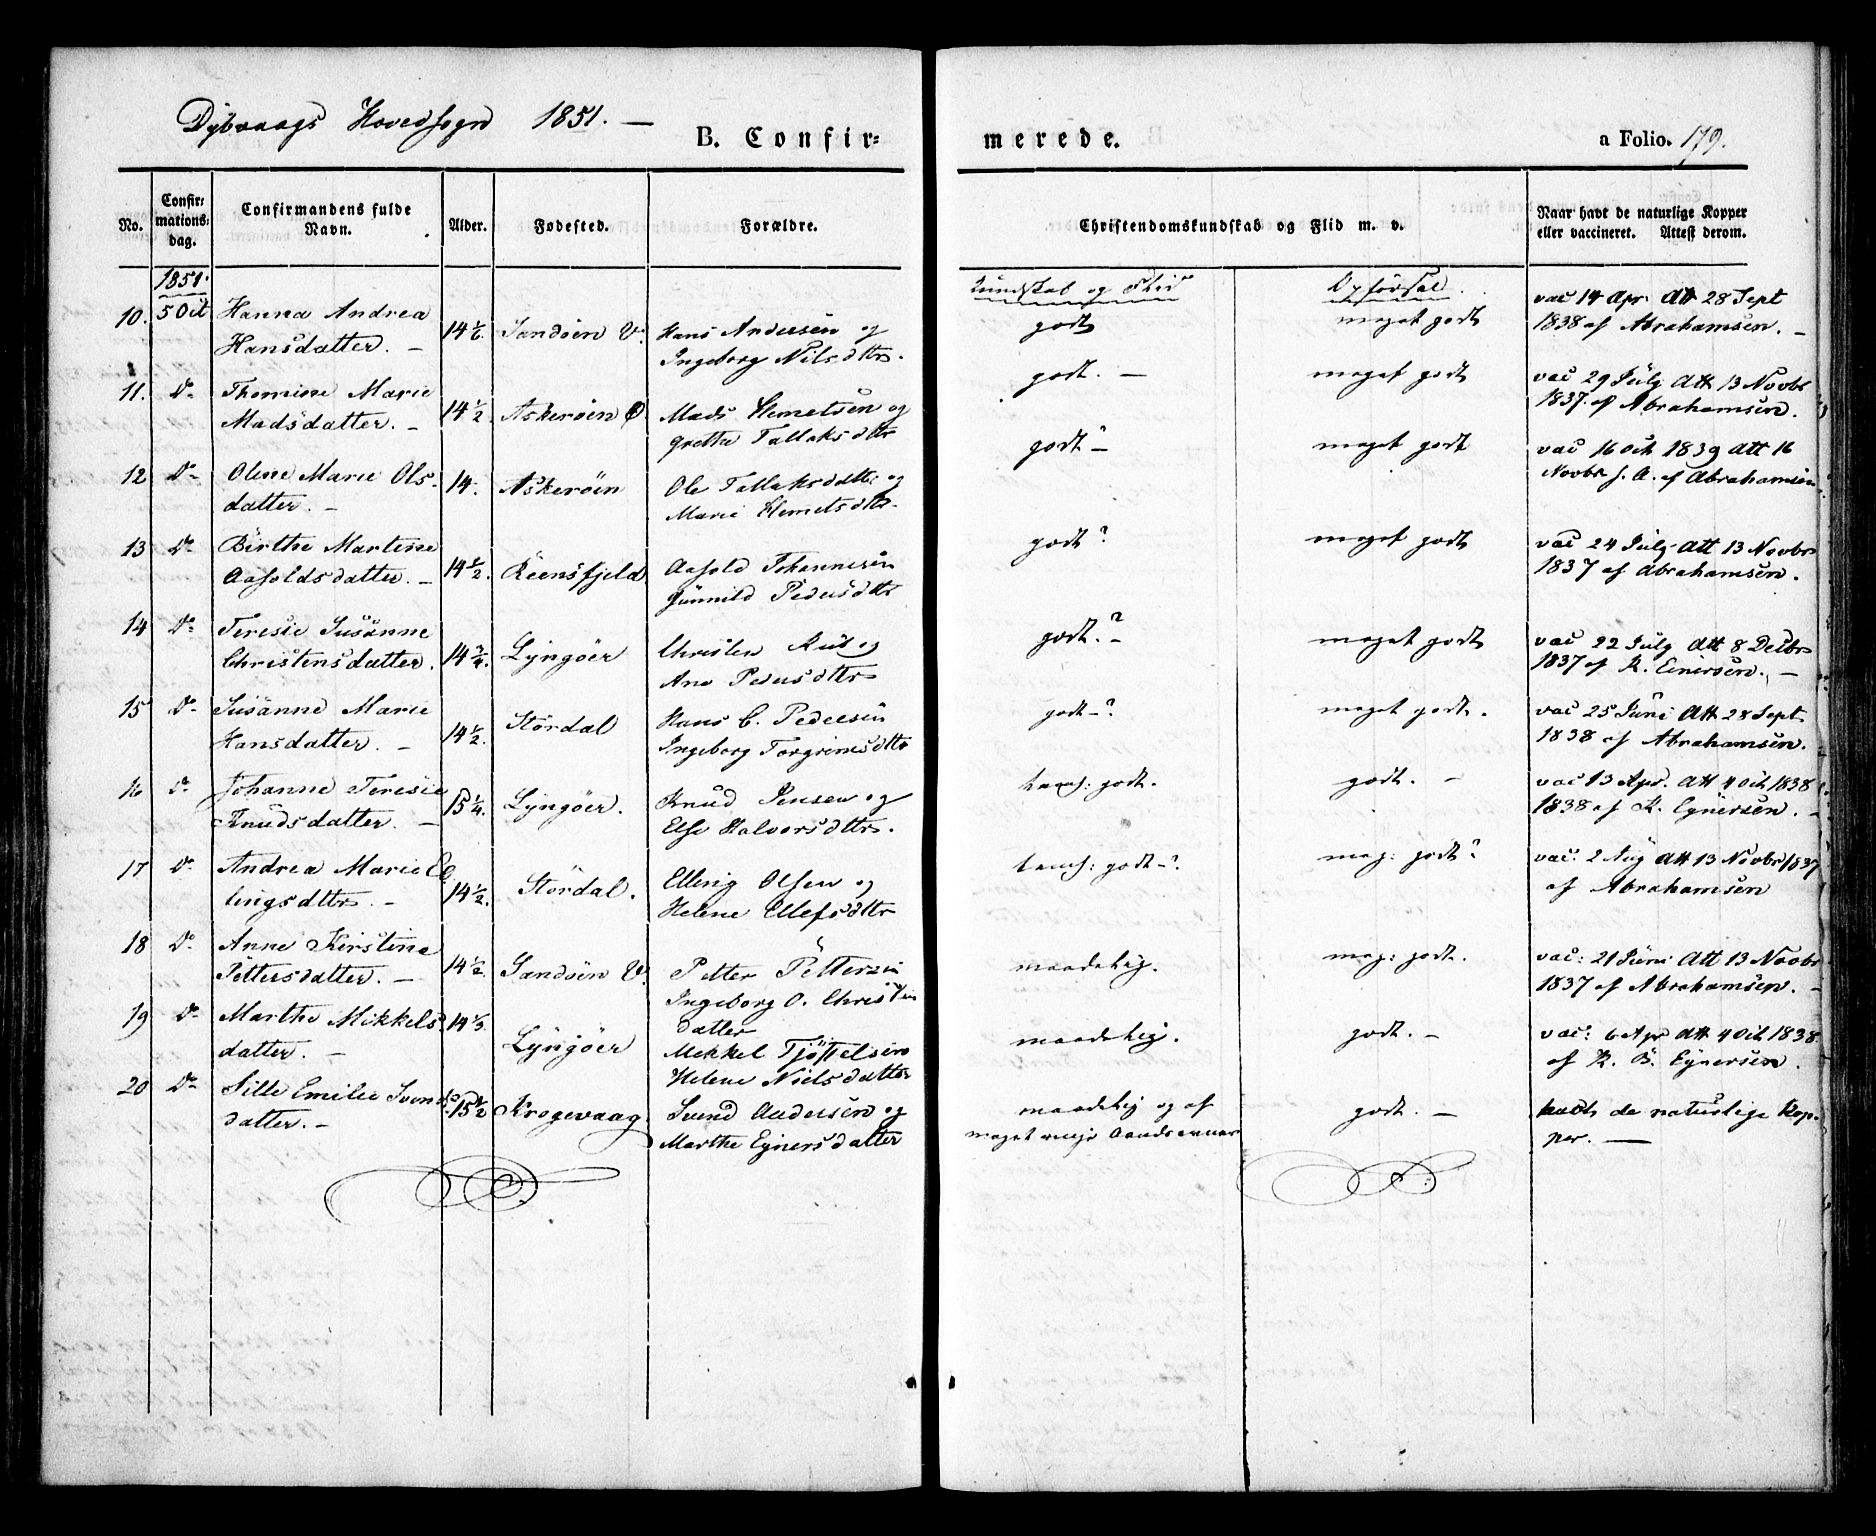 Dybvaags Hovedsogn 1851. —
B. Confir=
merede.
a Folio. 179.
No.
Confir=
mations=
dag.
Confirmandens fulde
Navn.
Alder.
Fødested.
Forældre.
Christendomskundskab og Flid m. v.
Naar havt de naturlige Kopper
eller vaccineret. Attest derom.
1851.
Kundskab og Flid
Opførsel.
10. 5 Oct Hanna Andrea
Hansdatter. —
14 1/2. Sandøen V. Hans Andersen og
Ingeborg Nilsdttr.
godt
meget godt
vac 14 Apr. Att 28 Sept
1838 af Abrahamsen. —
11. Do Thomine Marie
Madsdatter. —
14 1/2 Askerøen Mads Hemetsen og
Grethe Tallaksdttr
godt. —
meget godt
vac 29 July Att 13 Novbr
1837 af Abrahamsen.
12 Do Olene Marie Ols-
datter. —
14. Askerøen Ole Tallaksdttr og
Marie Hemetsdttr
godt —
meget godt
vac 16 Oct 1839 Att 16
Novbr s. A. af Abrahamsen
13 Do Birthe Martine
Aasoldsdatter. —
14 1/2. Reensfjeld Aasold Johannesen
Gunnild Pedersdttr
godt?
meget godt
vac 24 July Att 13 Novbr
1837 af Abrahamsen.
14 Do Teresie Susanne
Christensdatter.
14 3/4. Lyngøer Christen og
Ane Pedersdttr
godt.? —
meget godt
vac 22 July Att 8 Decbr
1837 af K. Einersen. —
15 Do Susanne Marie
Hansdatter. —
14 1/2. Stördal Hans C. Pedersen
Ingeborg Torgrimsdttr
godt —?
meget godt.
vac 25 Juni Att 28 Sept
1838 af Abrahamsen.
16 Do Johanne Teresie
Knudsdatter. —
15 1/4. Lyngøer. Knud Jensen og
Else Halvorsdttr.
tems: godt.
godt. —
vac 13 Apr. Att 4 Oct 1838
1838 af K. Eynersen. —
17 Do Andrea Marie El-
lingsdttr. —
14 1/2. Stördal. Elling Olsen og
Helene Ellefsdttr
tems: godt —?
meg: godt?
vac: 2 Aug Att 13 Novbr 1837
af Abrahamsen
18 Do Anne Kirstine
Pettersdatter. —
14 1/2. Sandøen V. Petter Pettersen
Ingeborg O. Christen
datter
maadelig.
meg: godt.
vac: 21 Juni Att 13 Novbr
1837 af Abrahamsen. —
19 Do Marthe Mikkels
datter. —
14 1/3. Lyngøer Mekkel Tjøstelsen
Helene Nielsdatter
maadelig.
godt. —
vac: 6 Apr Att 4 Oct 1838
af K. B. Eynersen.
20 Do Sille Emilie Svends
datter. —
15 1/2 Krogevaag. Svend Andersen og
Marthe Eynersdatter
maadelig og af
meget ringe Aandsevner
godt. —
havt de naturlige Kop-
per. —